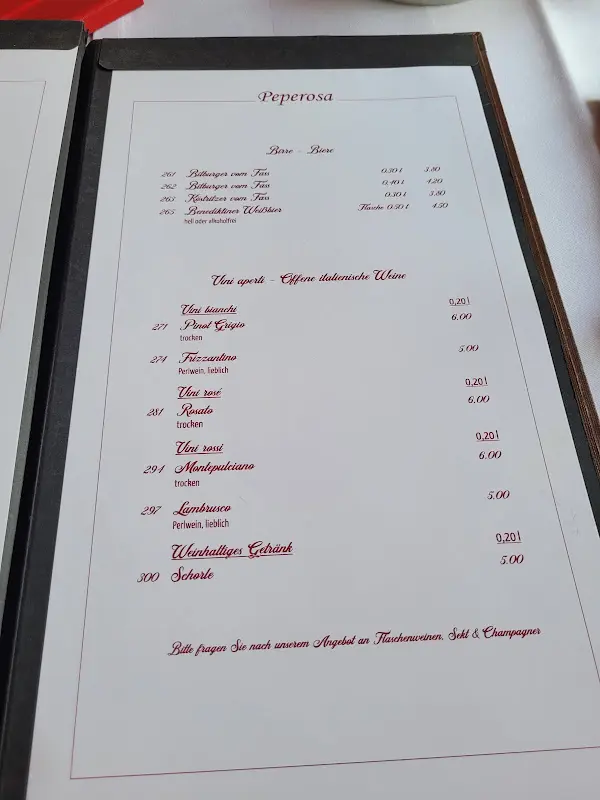 Peperosa
Birre - Biere
261 Bitburger vom Fass 0,30 l 3.80
262 Bitburger vom Fass 0,40 l 4.20
263 Köstritzer vom Fass 0.30 l 3.80
265 Benediktiner Weißbier Flasche 0.50 l 4.50
hell oder alkoholfrei
Vini aperti - Offene italienische Weine
Vini bianchi 0,20 l
271 Pinot Grigio 6.00
trocken
274 Frizzantino 5.00
Perlwein, lieblich
Vini rosé 0,20 l
281 Rosato 6.00
trocken
Vini rossi 0,20 l
294 Montepulciano 6.00
trocken
297 Lambrusco 5.00
Perlwein, lieblich
Weinhaltiges Getränk 0,20 l
300 Schorle 5.00
Bitte fragen Sie nach unserem Angebot an Flaschenweinen, Sekt & Champagner